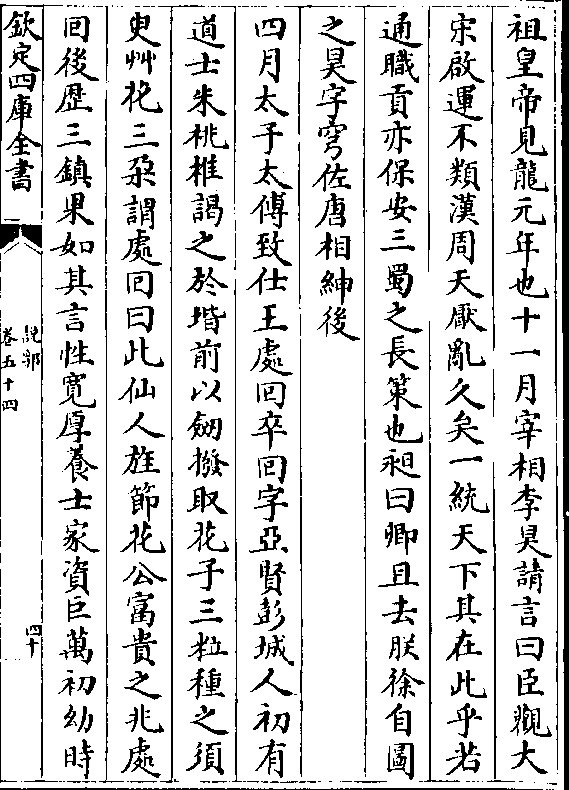 祖皇帝見龍元年也十一月宰相李昊請言曰臣觀大
宋啟運不類漢周天厭亂久矣一統天下其在此乎若
通職貢亦保安三蜀之長策也昶曰卿且去朕徐自圖
之昊字穹佐唐相紳後
四月太子太傅致仕王處回卒回字亞賢彭城人初有
道士朱桃椎謁之於堦前以劒撥取花子三粒種之須
臾艸花三朶謂處回曰此仙人旌節花公富貴之兆處
回後歴三鎮果如其言性寛厚養士家資巨萬初幼時
欽定四庫全書
說郛
卷五十四
四十